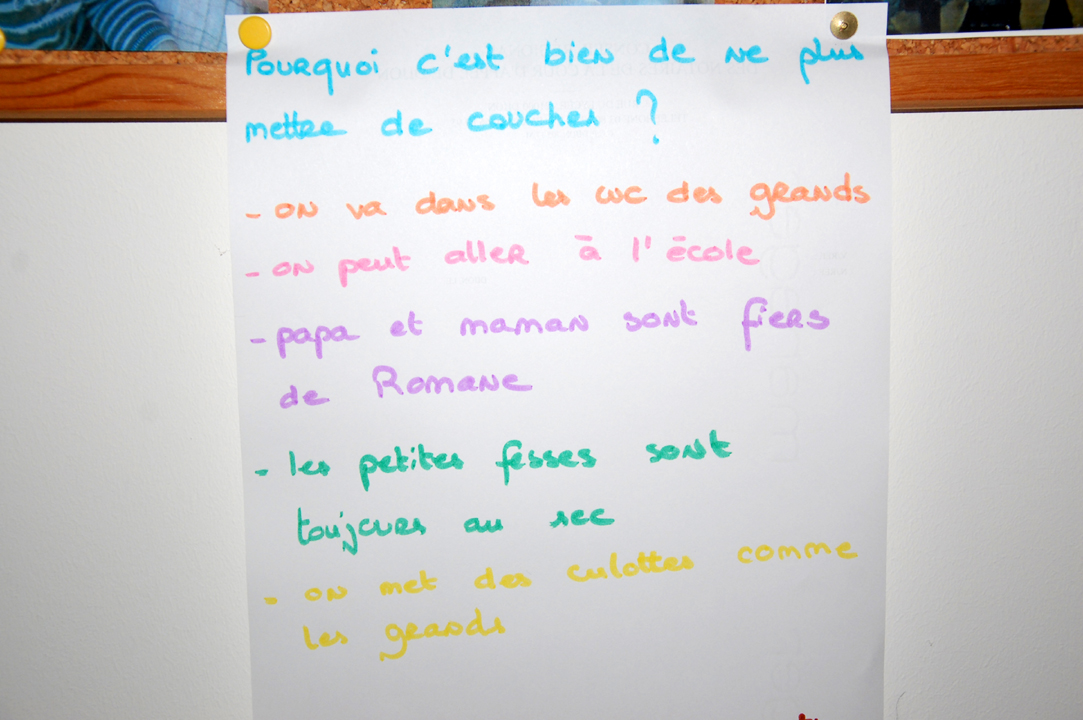 Pourquoi c'est bien de ne plus
mettre de couches ?
- on va dans les wc des grands
- on peut aller à l'école
- papa et maman sont fiers
de Romane
- les petites fesses sont
toujours au sec
- on met des culottes comme
les grands